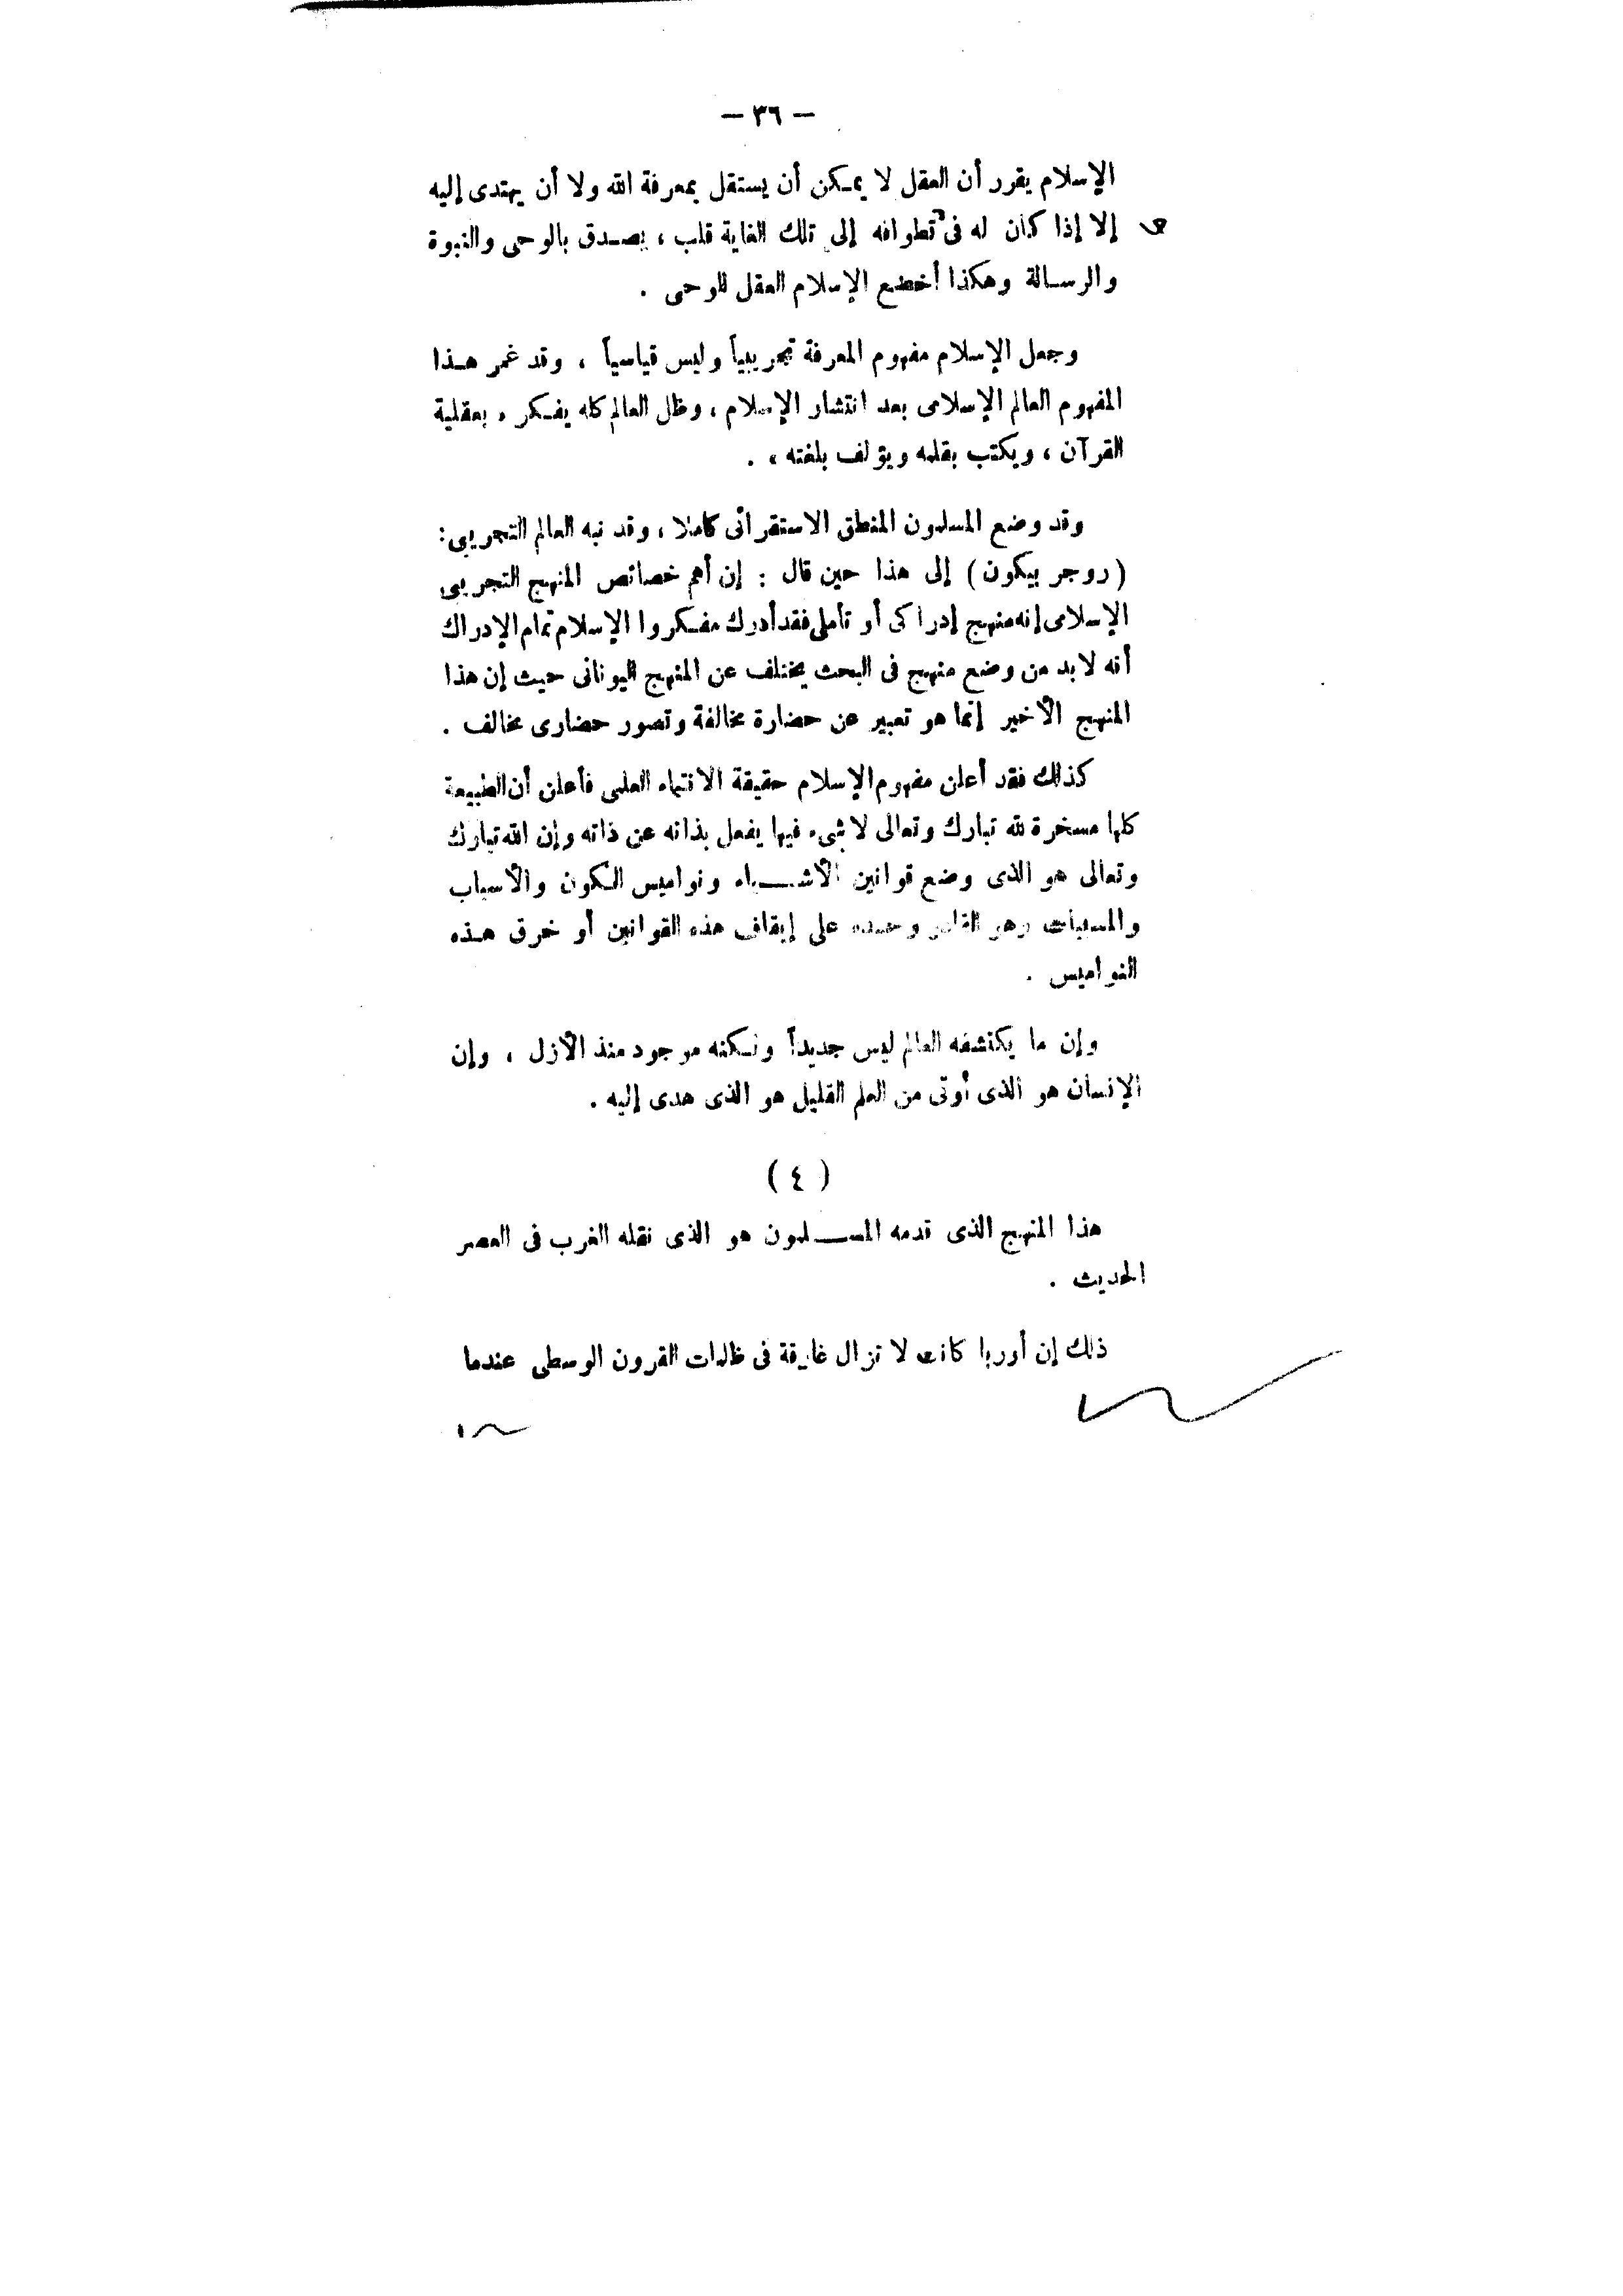 — ٣٦ —
الإسلام يقرر أن العقل لا يمكن أن يستقل بمعرفة الله ولا أن يهتدى إليه
إلا إذا كان له فى تطوافه إلى تلك الغاية قلب ، يصدق بالوحى والنبوة
والرسالة وهكذا أخضع الإسلام العقل للوحى .
وجعل الإسلام مفهوم المعرفة تجريبياً وليس قياسياً ، وقد غمر هذا
المفهوم العالم الإسلامى بعد انتشار الإسلام ، وظل العالم كله يفكر « بعقلية
القرآن ، ويكتب بقلمه ويؤلف بلغته » .
وقد وضع المسلمون المنطق الاستقرائى كاملا ، وقد نبه العالم التجريبى :
( روجر بيكون ) إلى هذا حين قال : إن أهم خصائص المنهج التجريبى
الإسلامى إنه منهج إدراكى أو تأملى فقد أدرك مفكروا الإسلام تمام الإدراك
أنه لابد من وضع منهج فى البحث يختلف عن المنهج اليونانى حيث إن هذا
المنهج الأخير إنما هو تعبير عن حضارة مخالفة وتصور حضارى مخالف .
كذلك فقد أعلن مفهوم الإسلام حقيقة الانتماء العلمى فأعلن أن الطبيعة
كلها مسخرة لله تبارك وتعالى لا شىء فيها يفعل بذاته عن ذاته وإن الله تبارك
وتعالى هو الذى وضع قوانين الأشياء ونواميس الكون والأسباب
والمسببات وهو القادر وحده على إيقاف هذه القوانين أو خرق هذه
النواميس .
وإن ما يكتشفه العالم ليس جديداً ولكنه موجود منذ الأزل ، وإن
الإنسان هو الذى أوتى من العلم القليل هو الذى هدى إليه .
( ٤ )
هذا المنهج الذى قدمه المسلمون هو الذى نقله الغرب فى العصر
الحديث .
ذلك إن أوربا كانت لا تزال غارقة فى ظلمات القرون الوسطى عندما